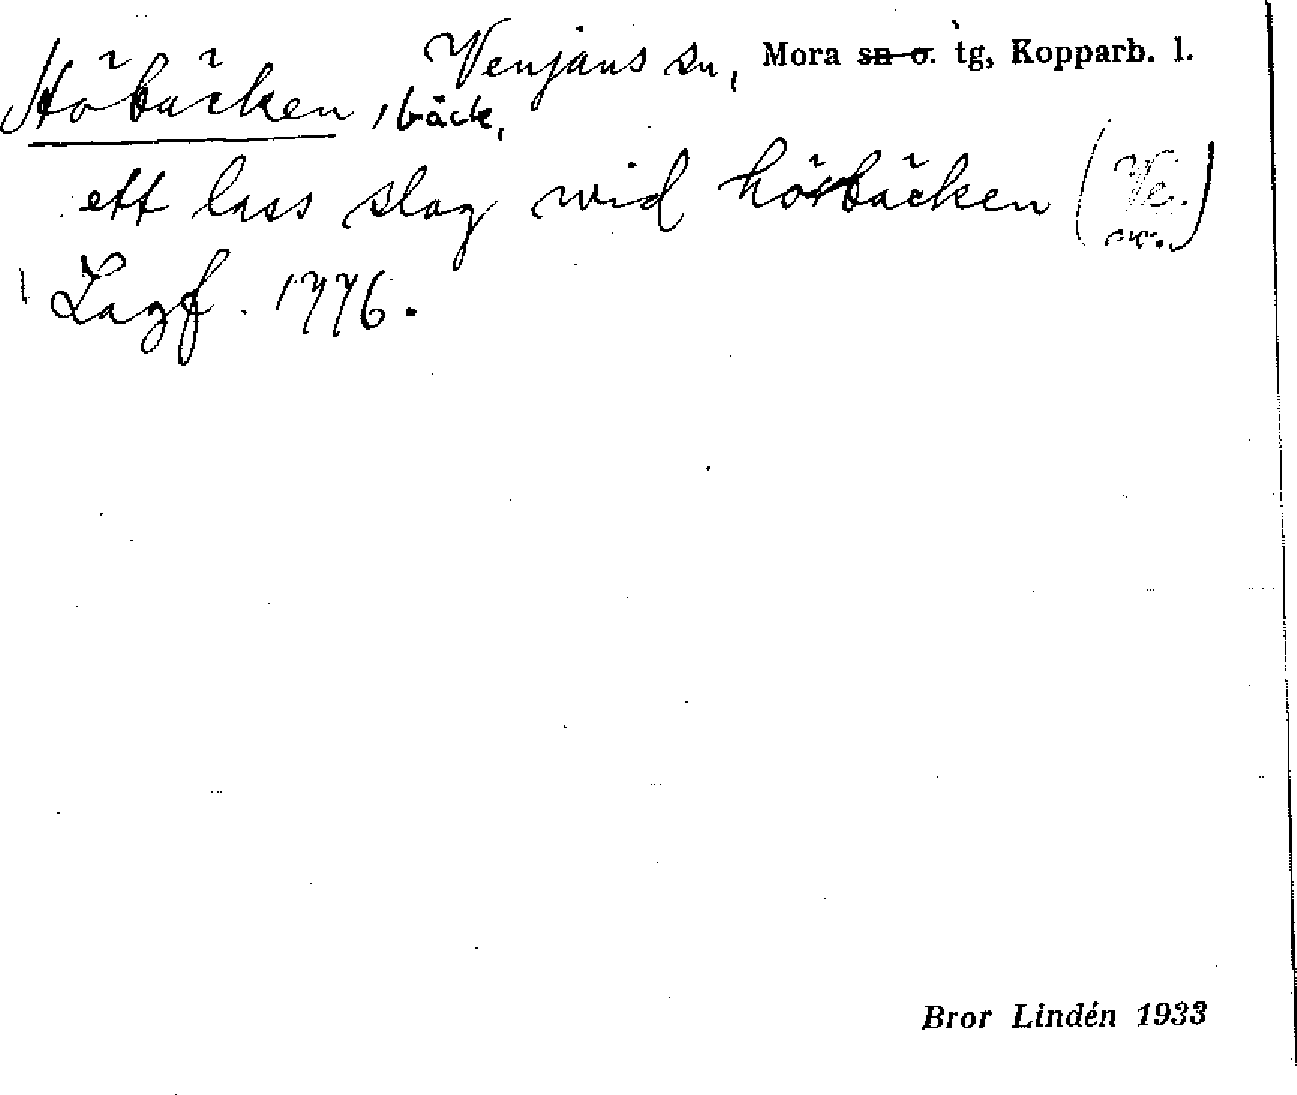 Venjans sn, Mora sn o. tg, Kopparb. l.
Höbäcken, bäck,
ett lass slag wid höbäcken (Ve.
sn.)
Lagf. 1776.
Bror Lindén 1933